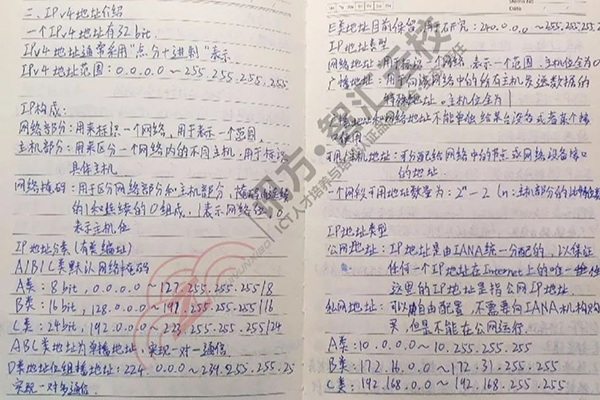 三、IPv4地址介绍
一个IPv4地址有32bit.
IPv4地址通常采用"点分十进制"表示
IPv4地址范围: 0.0.0.0~255.255.255.255
IP构成:
网络部分: 用来标识一个网络, 用于表示一个范围.
主机部分: 用来区分一个网络内的不同主机, 用于标识
具体主机
网络掩码: 用于区分网络部分和主机部分,
的1和连续的0组成, 1表示网络位, 0
表示主机位
IP地址分类 (有类编址)
A/B/C类默认网络掩码
A类: 8bit, 0.0.0.0~127.255.255.255/8
B类: 16bit, 128.0.0.0~191.255.255.255/16
C类: 24bit, 192.0.0.0~223.255.255.255/24
ABC类地址为单播地址, 实现一对一通信
D类地址位组播地址: 224.0.0.0~239.255.255.25
实现一对多通信.
E类地址目前保留用于研究: 240.0.0.0~255.255.255
IP地址类型
网络地址: 用于标识一个网络, 表示一个范围, 主机位全为0
广播地址: 用于向该网络中的所有主机发送数据的
特殊地址. 主机位全为1
地址和网络地址不能单独给某台设备或者某个接
使用
可用主机地址: 可分配给网络中的节点或网络设备接口
的地址.
一个网段可用地址数量为: 2ⁿ-2 (n: 主机部分的比特位数
IP地址类型
公网地址: IP地址是由IANA统一分配的, 以保证
任何一个IP地址在Internet上的唯一性
这里的IP地址是指公网IP地址
私网地址: 可以自由配置, 不需要向IANA机构购
买, 但是不能在公网运行.
A类: 10.0.0.0~10.255.255.255
B类: 172.16.0.0~172.31.255.255
C类: 192.168.0.0~192.168.255.255
智汇云校
ICT人才培养与